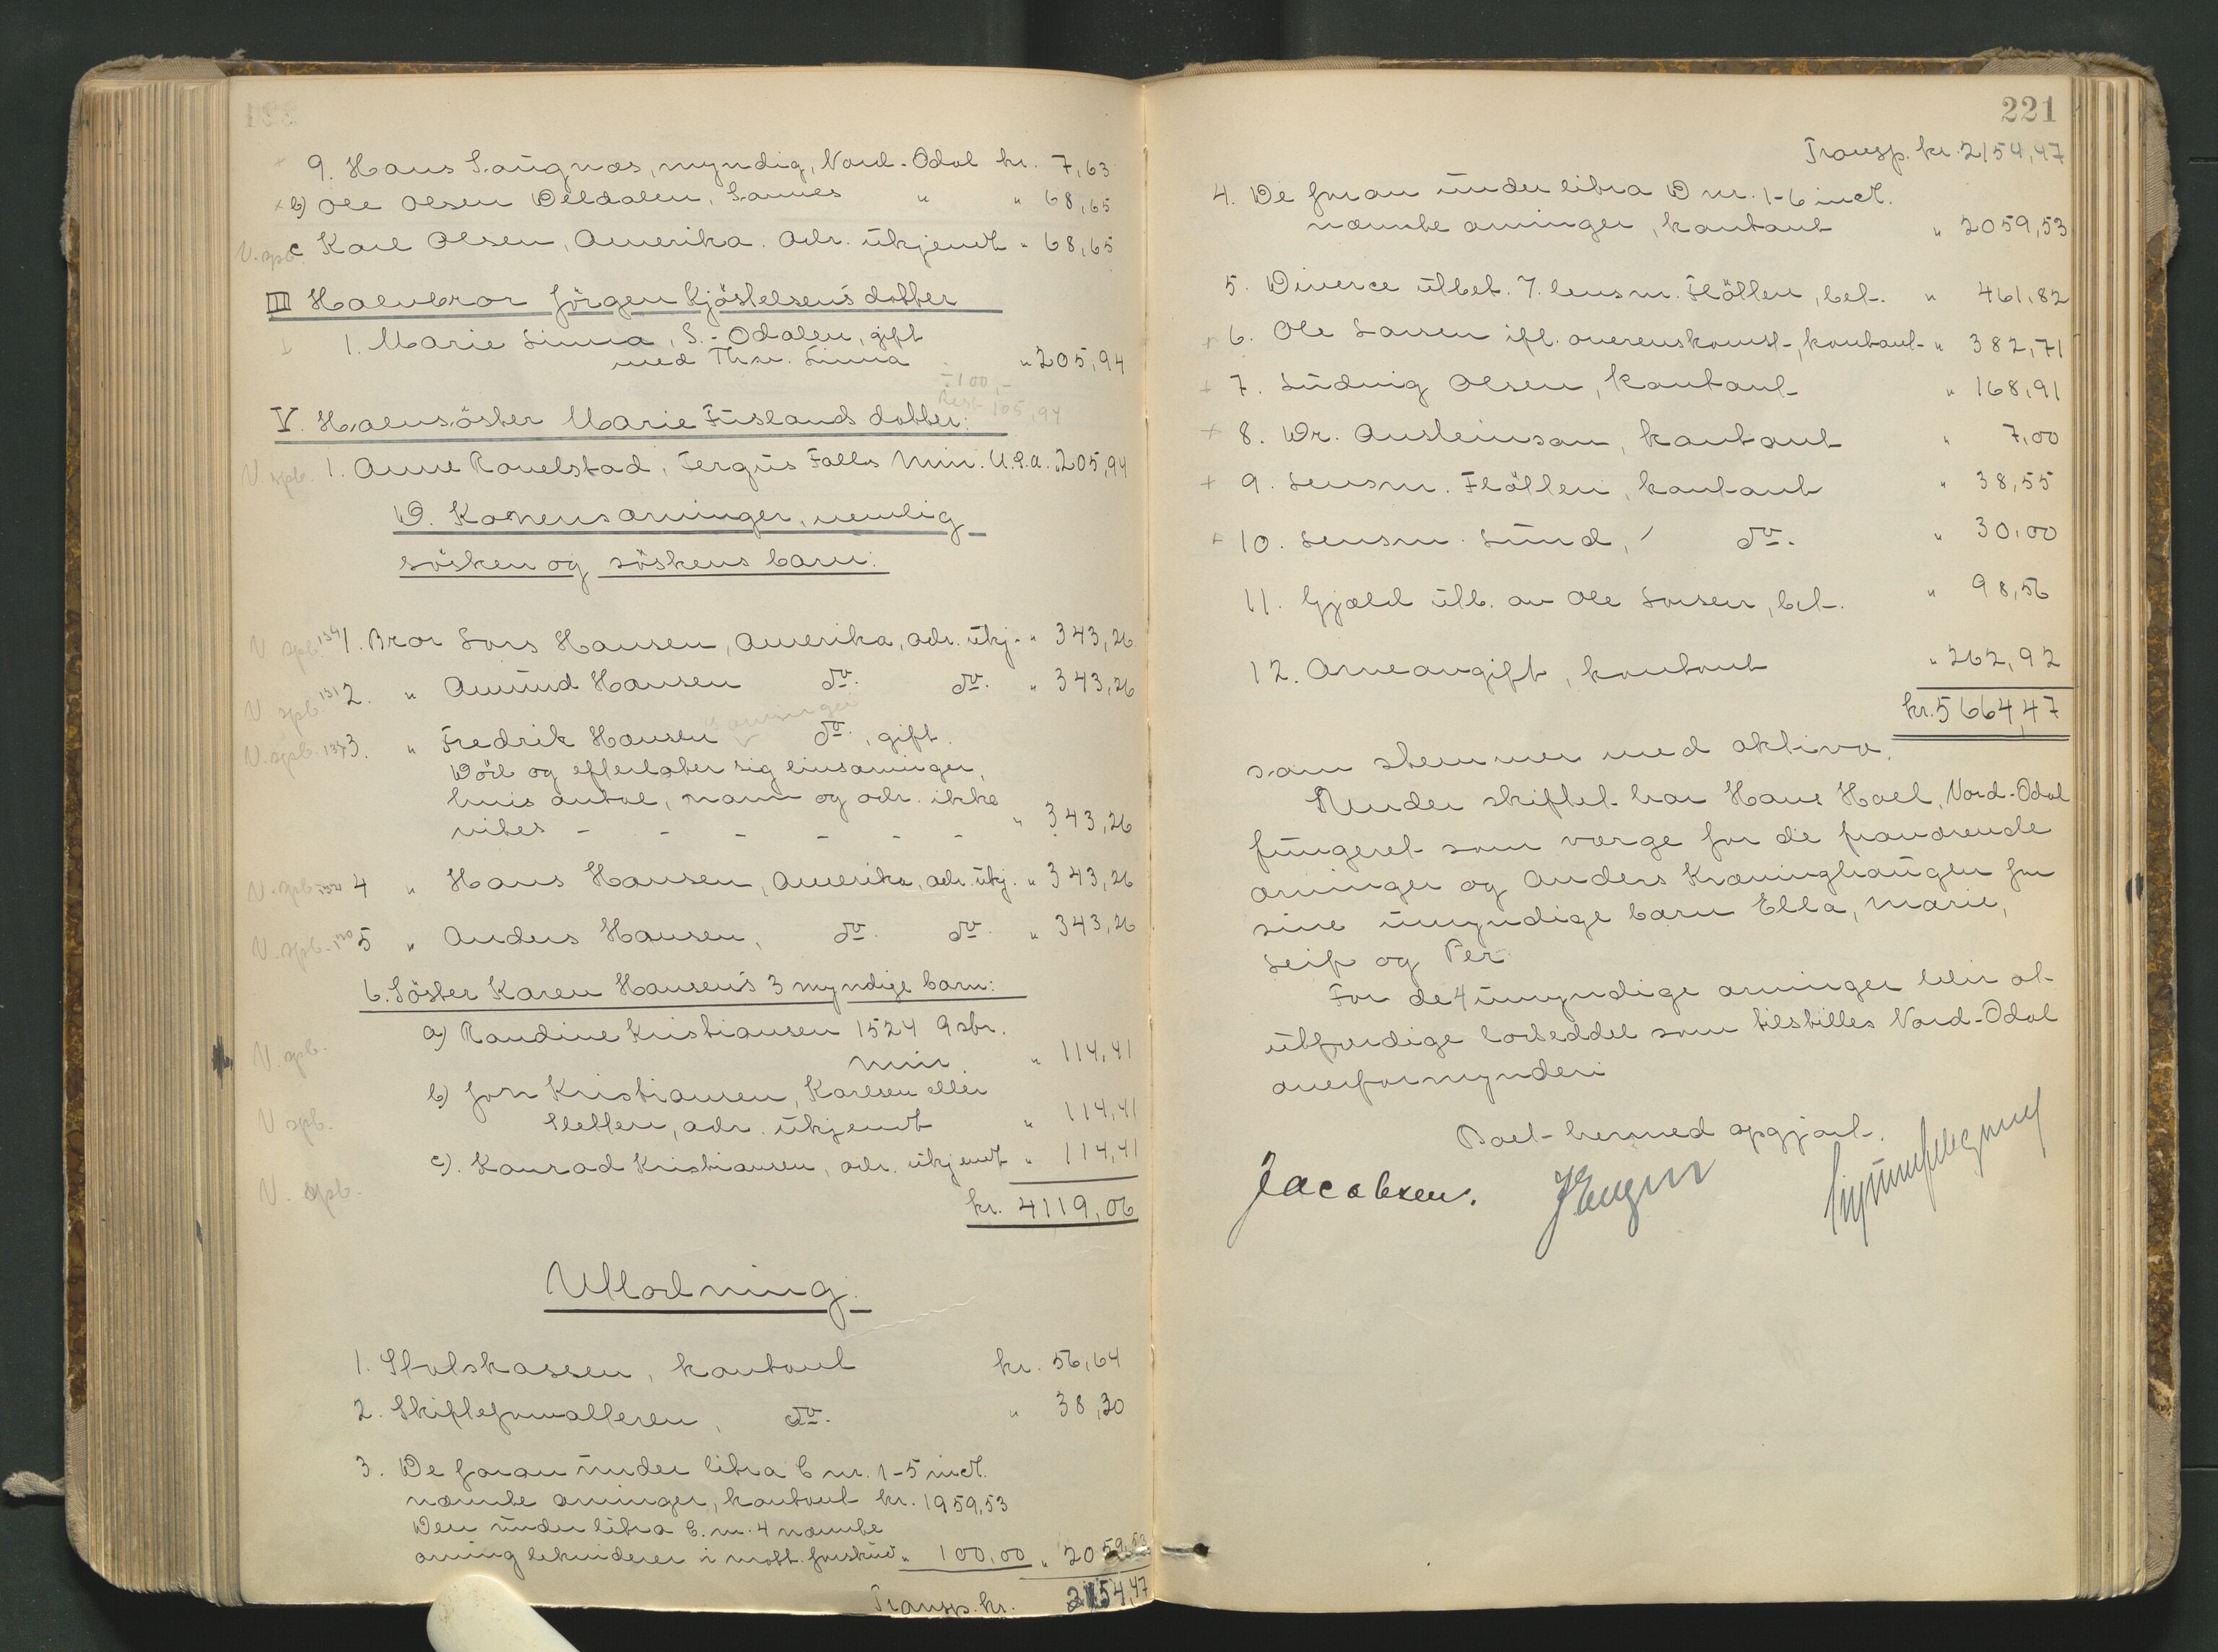 9. Hans Saugnæs, myndig, Nord-Odal kr. 7,63
b) Ole Olsen Deldalen, Sannes " " 68,65
V. spb. c Karl Olsen, Amerika. Adr. ukjendt " 68,65
III Halvbror Jörgen Kjöstelsens datter
1. Marie Linna, S.-Odalen, gift
med Thv. Linna " 205,94
÷ 100,-
Rest 105,94
V. Halvsöster Marie Fuslands datter:
V. spb. 1. Anne Rovelstad, Fergus Falls Min. U.S.A. " 205,94
D. Konens arvinger, nemlig
sösken og söskens barn:
V spb. 1. Bror Lars Hansen, Amerika, adr. ukj. " 343,26
V spb. 2. " Amund Hansen do. do. " 343,26
V. spb. 3. " Fredrik Hansen do., gift.
Död og efterlater sig livsarvinger,
hvis antal, navn og adr. ikke
vites - - - - - - " 343,26
V. spb. 4 " Hans Hansen, Amerika, adr. ukj. " 343,26
V. spb. 5 " Anders Hansen, do. do. " 343,26
6. Söster Karen Hansen's 3 myndige barn:
V spb. a) Randine Kristiansen 1524 9 str.
Min " 114,41
V spb. b) Jon Kristiansen, Karlsen eller
Sletten, adr. ukjendt " 114,41
V. spb. c). Konrad Kristiansen, adr. ukjendt " 114,41
kr. 4119,06
Utlodning.
1. Statskassen, kontant kr. 56,64
2. Skifteforvalteren, do. " 38,30
3. De foran under litra C nr. 1-5 incl.
nævnte arvinger, kontant kr. 1959,53
Den under litra C. nr. 4 nævnte
arving likviderer i mott. forskud " 100,00 " 2059,53
Transp. kr. 2154,47
221
Transp. kr. 2154,47
4. De foran under litra D nr. 1-6 incl.
nævnte arvinger, kontant " 2059,53
5. Diverce utbet. 7. lensm. Flöllen, bet. " 461,82
6. Ole Larsen ifl. overenskomst, kontant " 382,71
7. Ludvig Olsen, kontant " 168,91
8. Dr. Austeinson, kontant " 7,00
9. Lensm. Flöllen, kontant " 38,55
10. Lensm. Lund, do. " 30,00
11. Gjæld utb. av Ole Larsen, bet. " 98,56
12. Arveavgift, kontant " 262,92
kr. 5664,47
som stemmer med aktiva.
Under skiftet har Hans Hoel, Nord-Odal
fungeret som værge for de fraværende
arvinger og Anders Kræminghaugen for
sine umyndige barn Ella, Marie,
Leif og Per
For de 4 umyndige arvinger blir at
utfærdige lodseddel som tilstilles Nord-Odal
overformynderi
Boet hermed opgjort.
Jacobsen.